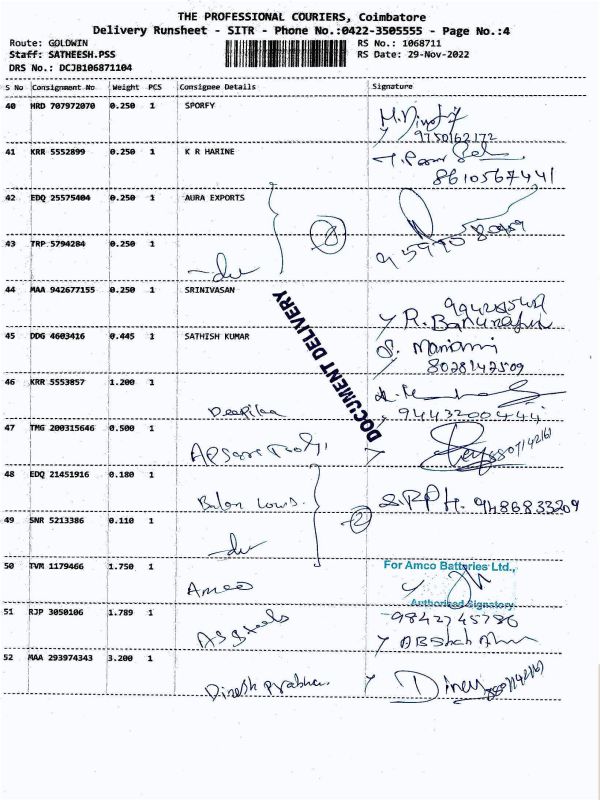 THE PROFESSIONAL COURIERS, Coimbatore
Delivery Runsheet - SITR - Phone No.:0422-3505555 - Page No.:4
Route: GOLDWIN
Staff: SATHEESH.PSS
DRS No.: DCJB106871104
RS No.: 1068711
RS Date: 29-Nov-2022
S No Consignment No Weight PCS Consignee Details Signature
40 HRD 707972070 0.250 1 SPORFY
9750162172
41 KRR 5552899 0.250 1 K R HARINE
8610567441
42 EDQ 25575404 0.250 1 AURA EXPORTS
43 TRP 5794284 0.250 1
44 MAA 942677155 0.250 1 SRINIVASAN
DOCUMENT DELIVERY
45 DDG 4603416 0.445 1 SATHISH KUMAR
8028142509
46 KRR 5553857 1.200 1 Deepika
47 TMG 200315646 0.500 1
48 EDQ 21451916 0.180 1
9486833209
49 SNR 5213386 0.110 1
2
50 TVM 1179466 1.750 1 Amco
For Amco Batteries Ltd.,
Authorised Signatory
9842745786
51 RJP 3050106 1.789 1
52 MAA 293974343 3.200 1 Dinesh prabhu